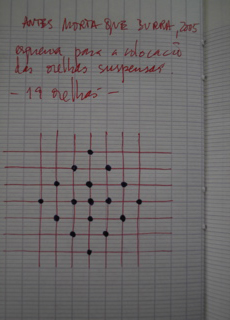 ANTES MORTA QUE BURRA, 2005
esquema para a colocação
das orelhas suspensas.
- 19 orelhas -